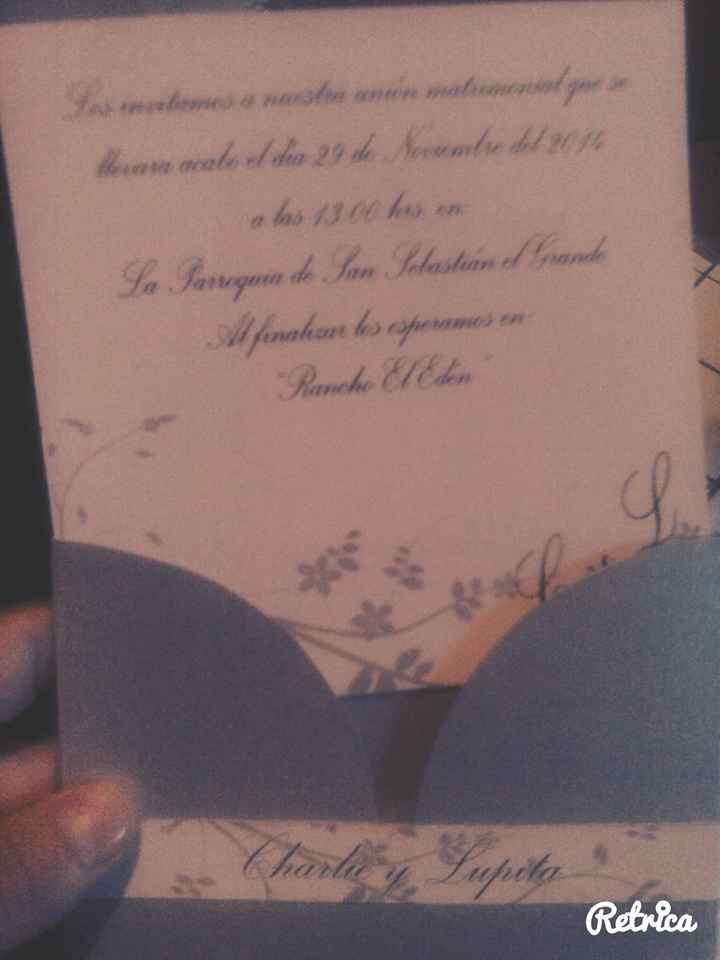 Los invitamos a nuestra unión matrimonial que se
llevara acabo el dia 29 de Noviembre del 2014
a las 13:00 hrs en:
La Parroquia de San Sebastián el Grande
Al finalizar los esperamos en:
"Rancho El Edén"
Charlie y Lupita
Retrica